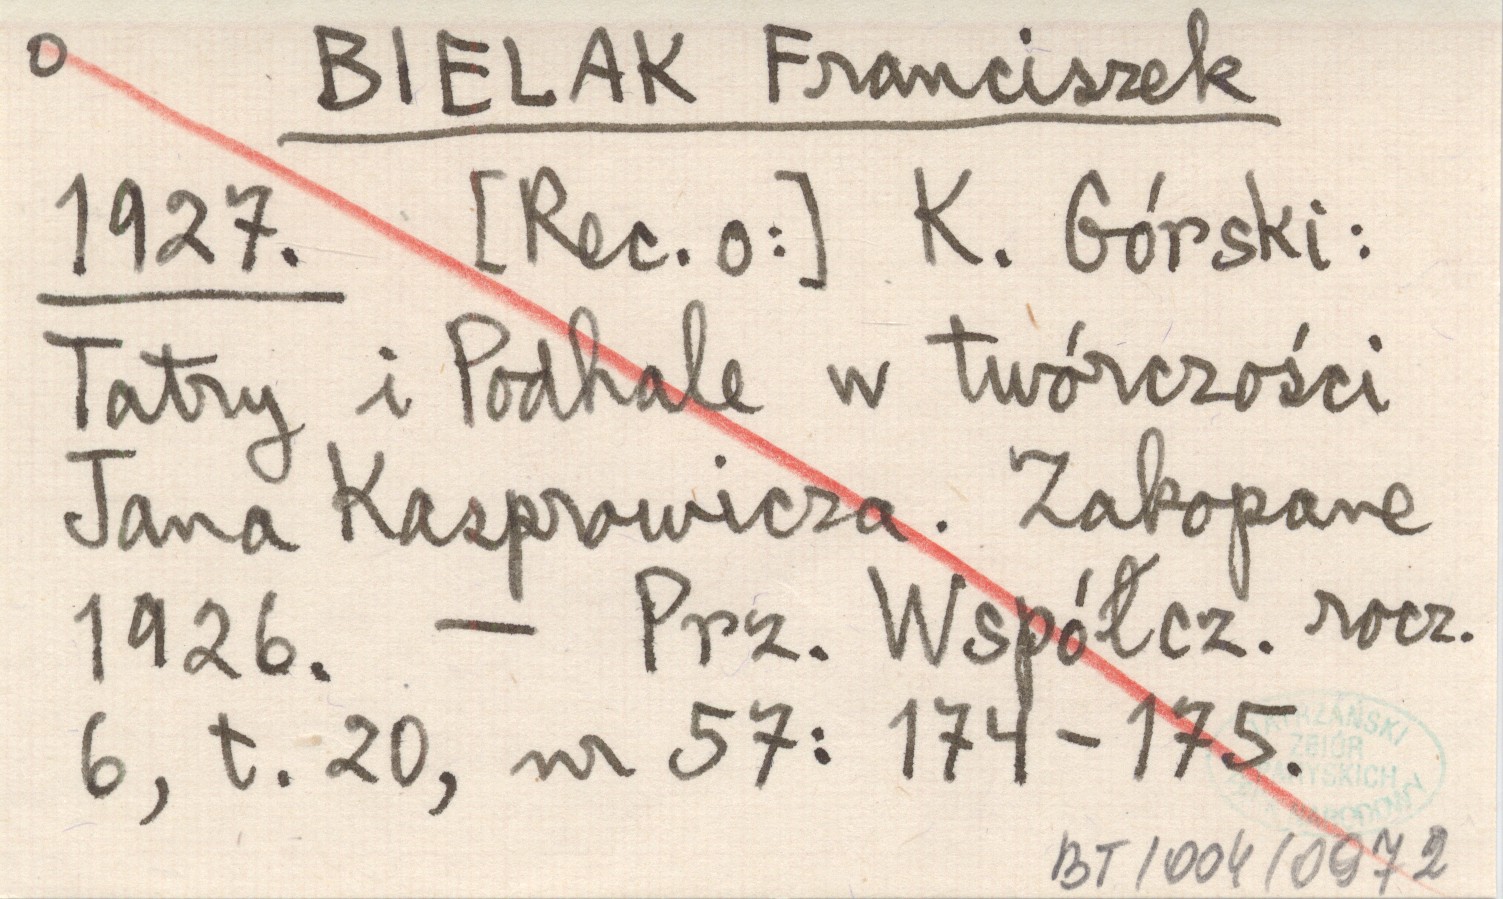 o BIELAK Franciszek
1927. [Rec. o:] K. Górski:
Tatry i Podhale w twórczości
Jana Kasprowicza. Zakopane
1926. — Prz. Współcz. rocz.
6, t. 20, nr 57: 174-175.
ZBIÓR
BT/004/0972